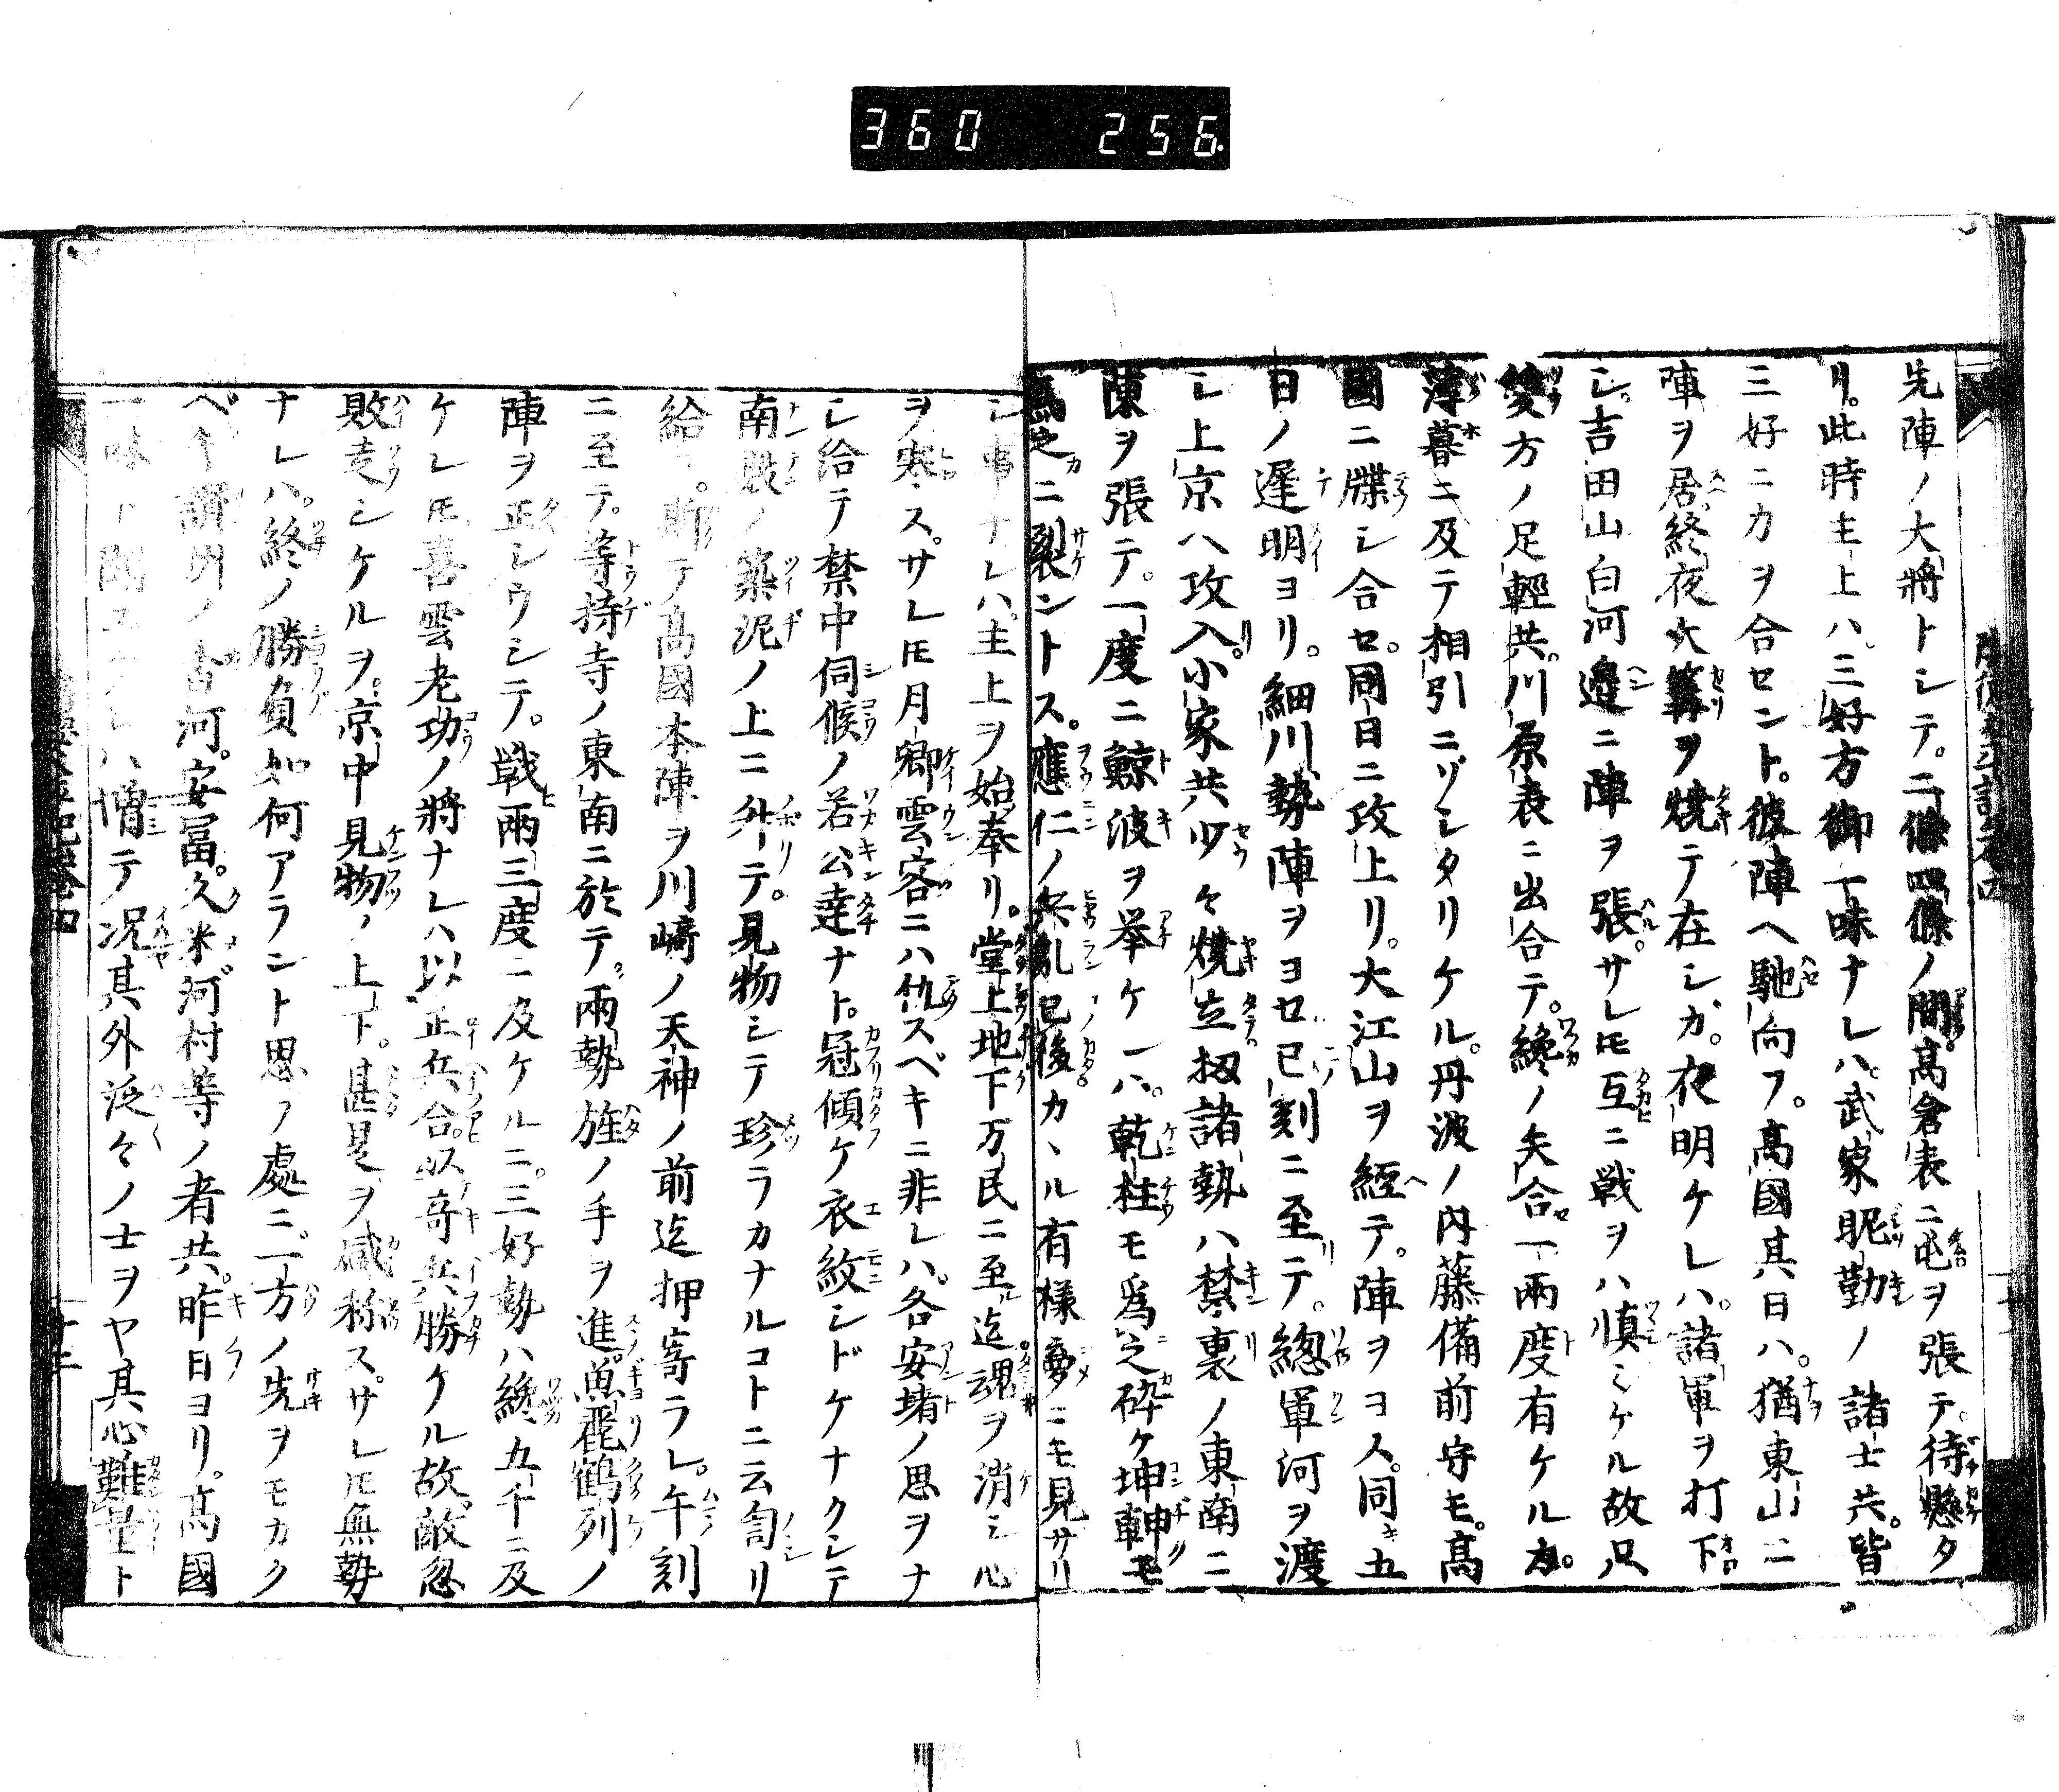 360 256
先陣ノ大將トシテ。二條四條ノ間。髙倉表ニ屯ヲ張テ。待懸タ
リ。此時主上ハ。三好方御一味ナレハ。武家昵勤ノ諸士共。皆
三好ニカヲ合セント。彼陣ヘ馳向フ。髙國其日ハ。猶東山ニ
陣ヲ居。終夜大篝ヲ焼テ在シガ。夜明ケレハ。諸軍ヲ打下
シ。吉田山白河邊ニ陣ヲ張。サレ𪜈互ニ戦ヲハ慎ミケル故只
雙方ノ足輕共。川原表ニ出合テ。纔ノ矢合一兩度有ケルカ。
薄暮ニ及テ相引ニゾシタリケル。丹波ノ内藤備前守モ。髙
國ニ牒シ合セ。同日ニ攻上リ。大江山ヲ經テ。陣ヲヨス。同キ五
日ノ遅明ヨリ。細川勢陣ヲヨセ已刻ニ至テ。總軍河ヲ渡
シ上京ハ攻入。小家共少々燒立扨諸勢ハ禁裏ノ東南ニ
陳ヲ張テ。一度ニ鯨波ヲ举ケヽハ。乾柱モ爲之砕ケ坤軸モ
爲之ニ裂ントス。應仁ノ兵乱已後。カヽル有様夢ニモ見サリ
シ事ナレハ。主上ヲ始奉リ。堂上地下万民ニ至迄魂ヲ消シ心
ヲ寒ス。サレ𪜈月卿雲客ニハ仇スベキニ非レハ。各安堵ノ思ヲナ
シ給テ禁中伺候ノ若公達ナト。冠傾ケ衣紋シドケナクシテ
南殿ノ築泥ノ上ニ外テ。見物シテ珍ラカナルコトニ云訇リ
給フ。斯テ髙國本陣ヲ川﨑ノ天神ノ前迄押寄ラレ。午刻
ニ至テ。等持寺ノ東南ニ於テ。兩勢旌ノ手ヲ進。魚麗鶴列ノ
陣ヲ正シウシテ。戦兩三度ニ及ケルニ。三好勢ハ纔五千ニ及
ケレ𪜈喜雲老功ノ將ナレハ以正兵合。以竒兵勝ケル故。敵忽
敗走シケルヲ。京中見物ノ上下。甚是ヲ感称ス。サレ𪜈無勢
ナレハ。終ノ勝負如何アラント思フ處ニ。一方ノ先ヲモカク
ベキ讃州ノ香河。安冨。久米河村等ノ者共。昨日ヨリ。髙國
一味ト聞エケレハ惰テ况其外泛々ノ士ヲヤ其心難量ト